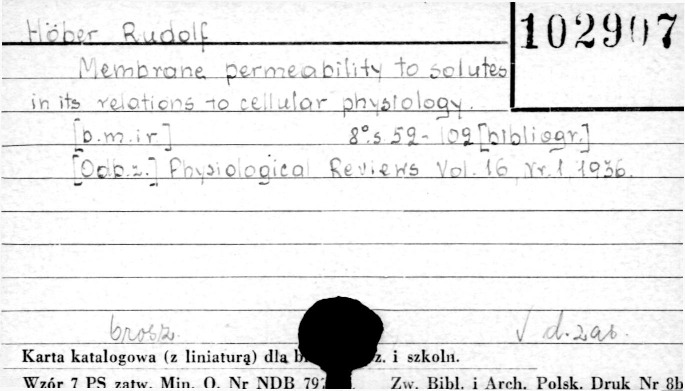 Höber Rudolf
102907
Membrane permeability to solutes
in its relations to cellular physiology.
[b.m.i r.] 8°. s. 52-102 [bibliogr.]
[Odb.z.] Physiological Reviews Vol. 16, Nr. 1, 1936.
brosz. √ d. zas.
Karta katalogowa (z liniaturą) dla b z. i szkoln.
Wzór 7 PS zatw. Min. O. Nr NDB 797 Zw. Bibl. i Arch. Polsk. Druk Nr 8b